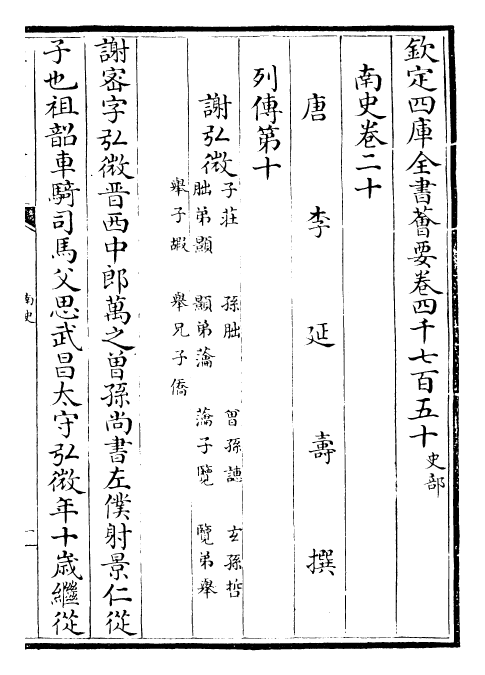 欽定四庫全書薈要卷四千七百五十 史部
南史卷二十
唐 李 延 壽 撰
列傳第十
謝弘微
子莊 孫朏 曾孫譓 玄孫哲
朏弟顥 顥弟瀹 瀹子覽 覽弟舉
舉子嘏 舉兄子僑
謝密字弘微晉西中郎萬之曽孫尚書左僕射景仁從
子也祖韶車騎司馬父思武昌太守弘微年十歳繼從
南史